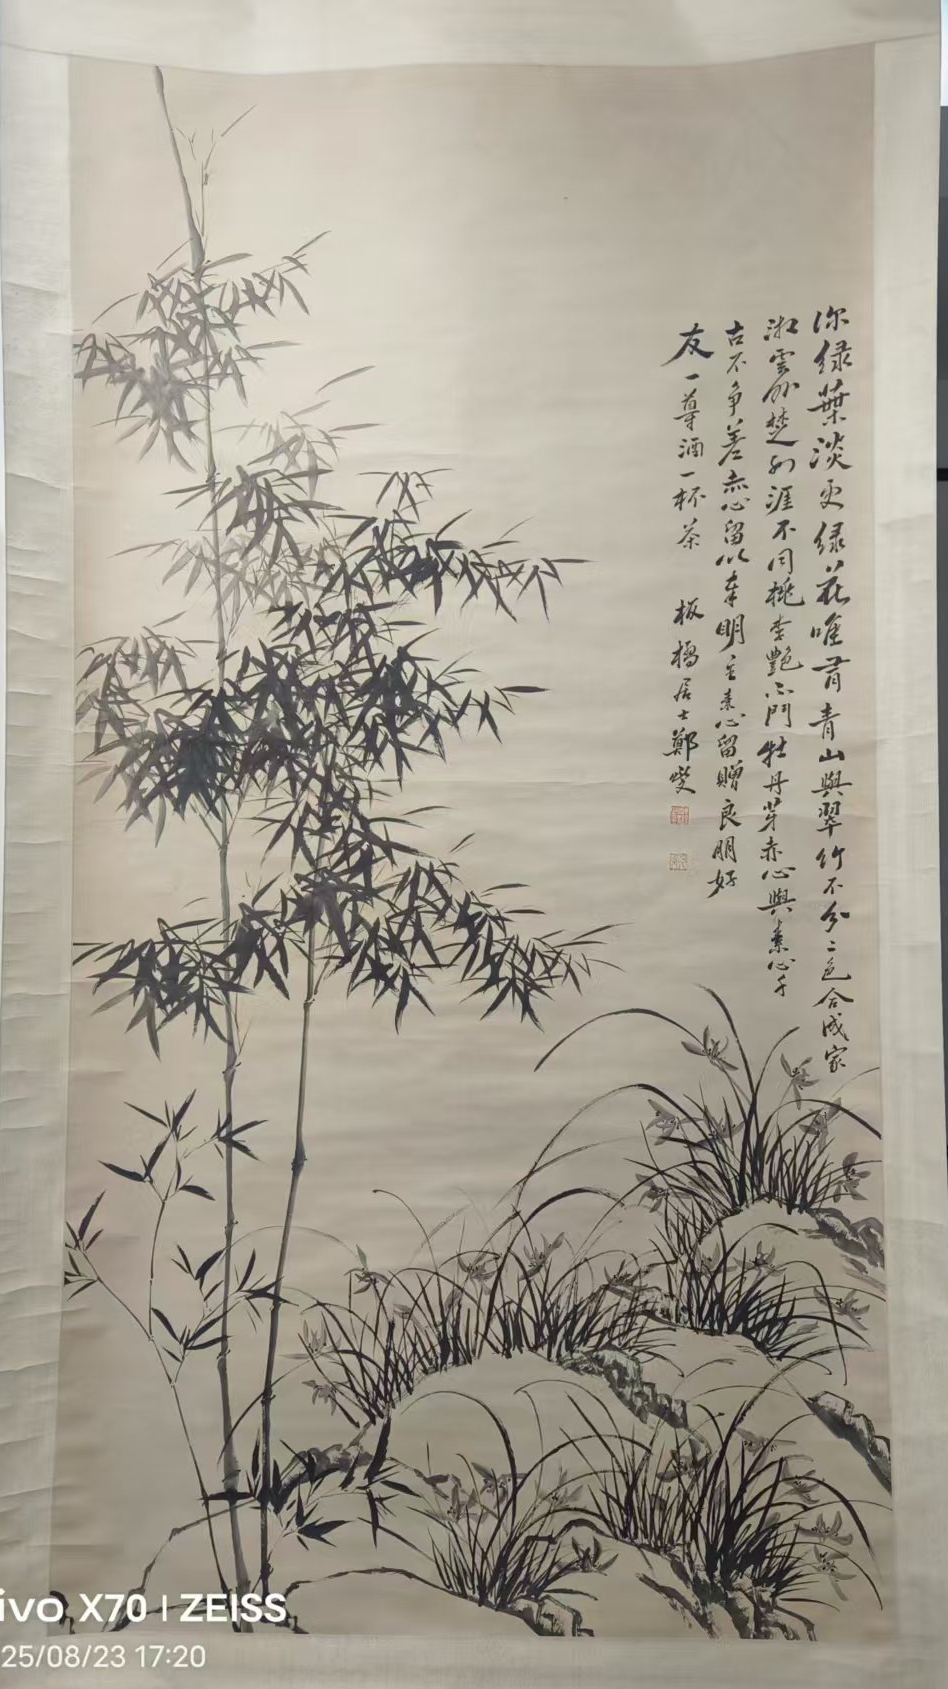 深绿葉淡更绿花唯有青山與翠竹不分二色合成家
湘雲外楚江涯不同桃李艷不鬥牡丹芽赤心與素心千
古不争差赤心留以奉明主素心留贈良朋好
友一尊酒一杯茶
板橋居士鄭燮
vivo X70 | ZEISS
25/08/23 17:20